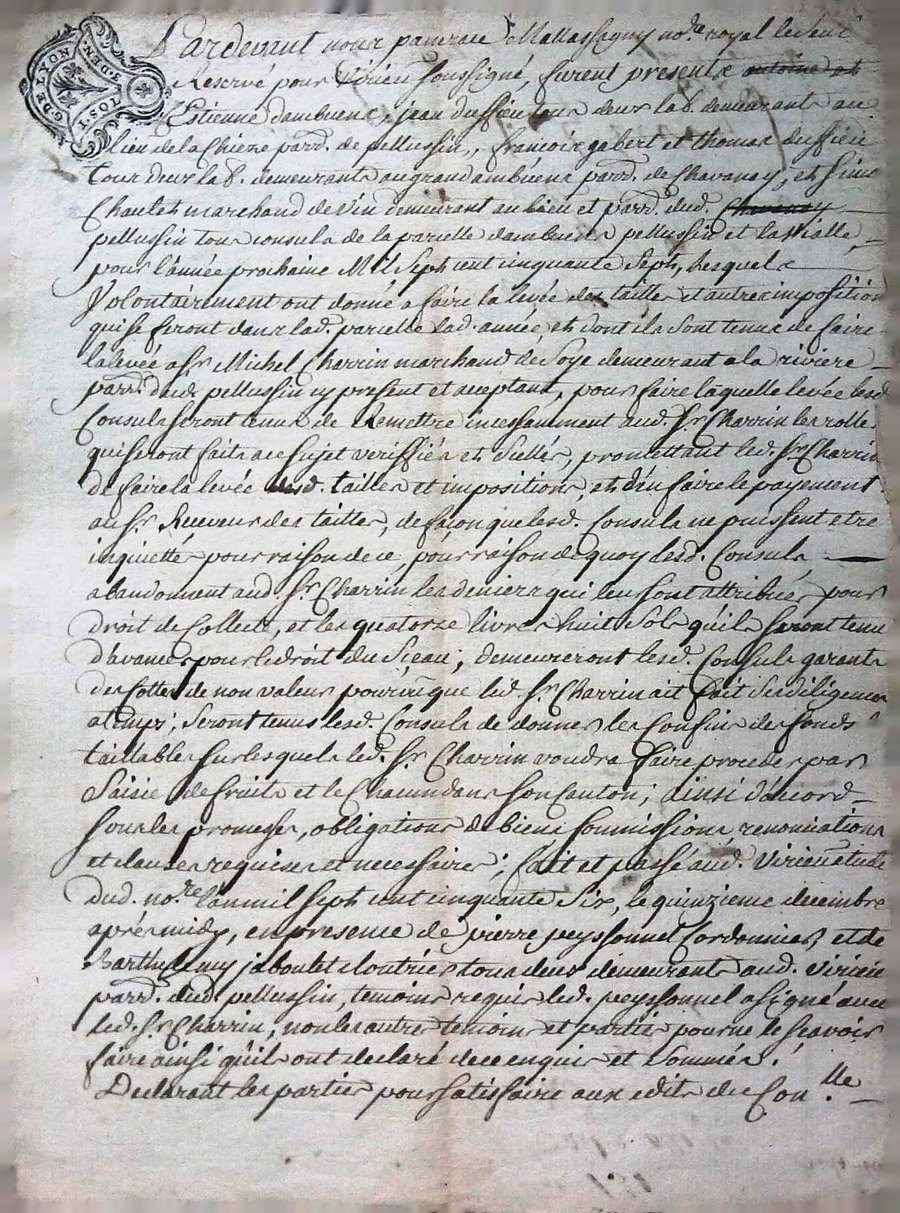 G. DE LYON
3. DEN.
10 S. T.
Pardevant nous pancrace Mallassagny no.re royal le seul
Reservé pour Virieu soussigné, furent presents antoine et
Estienne dambuent, jean dussieu tous deux lab. demeurants au
lieu de la Chieze parr. de pellussin, francois gabert et thomas dussieu
tous deux lab. demeurants au grand ambüent parr. de Chavanay, et
Chantet marchand de vin demeurant au lieu et parr. dud. Chavanay
pellussin tous consuls de la parcelle dambuent pellussin et la Vialle,
pour l'année prochaine Mil Sept cent cinquante Sept, Lesquels
Volontairement ont donné a faire la levée des tailles et autres imposition
qui se feront dans lad. parcelle lad. année et dont ils sont tenus de faire
la levée a sr. Michel Charrin marchand de Soye demeurant a la riviere
parr. dud. pellussin cy present et aceptant, pour faire laquelle levée lesd.
Consuls seront tenus de Remettre incessamment aud. Sr. Charrin les rolle
qui seront faits a ce sujet veriffiés et Sellés, promettant led. Sr. Charrin
de faire la levée desd. tailles et impositions, et d'en faire le payement
au Sr. Receveur des tailles, de façon que lesd. Consuls ne puissent etre
inquiettés pour raison de ce, pour raison de quoy lesd. Consuls
abandonnent aud. Sr. Charrin les deniers qui leur sont attribués pour
droit de Collecte, et les quatorze livres huit Sols qu'ils seront tenu
d'avancer pour le droit du Sceau; demeureront lesd. Consuls garants
des Cottes de non valeur pourvû que led. Sr. Charrin ait fait ses diligences
a temps; seront tenus lesd. Consuls de donner les Confins des fonds
taillables sur lesquels led. Sr. Charrin voudra faire proceder par
Saisie de fruits et le Chacun dans son Canton; ainsi d'acord
sous les promesses, obligations de biens soumissions, renonciations
et clauses requises et necessaires; fait et passé aud. Virieu etude
dud. no.re l'an mil sept cent cinquante Six, le quinzieme decembre
aprés midy, en presence de pierre peyssonnel Cordonnier, et de
Barthylemy jaboulet cloutrier tous deux demeurants aud. Virieu
parr. dud. pellussin, temoins requis led. peyssonnel a signé avec
led. Sr. Charrin, non les autres temoin et parties pour ne le scavoir
faire ainsi qu'ils ont declaré de ce enquis et Sommés!
Declarant les parties pour satisfaire aux edits du Con.lle